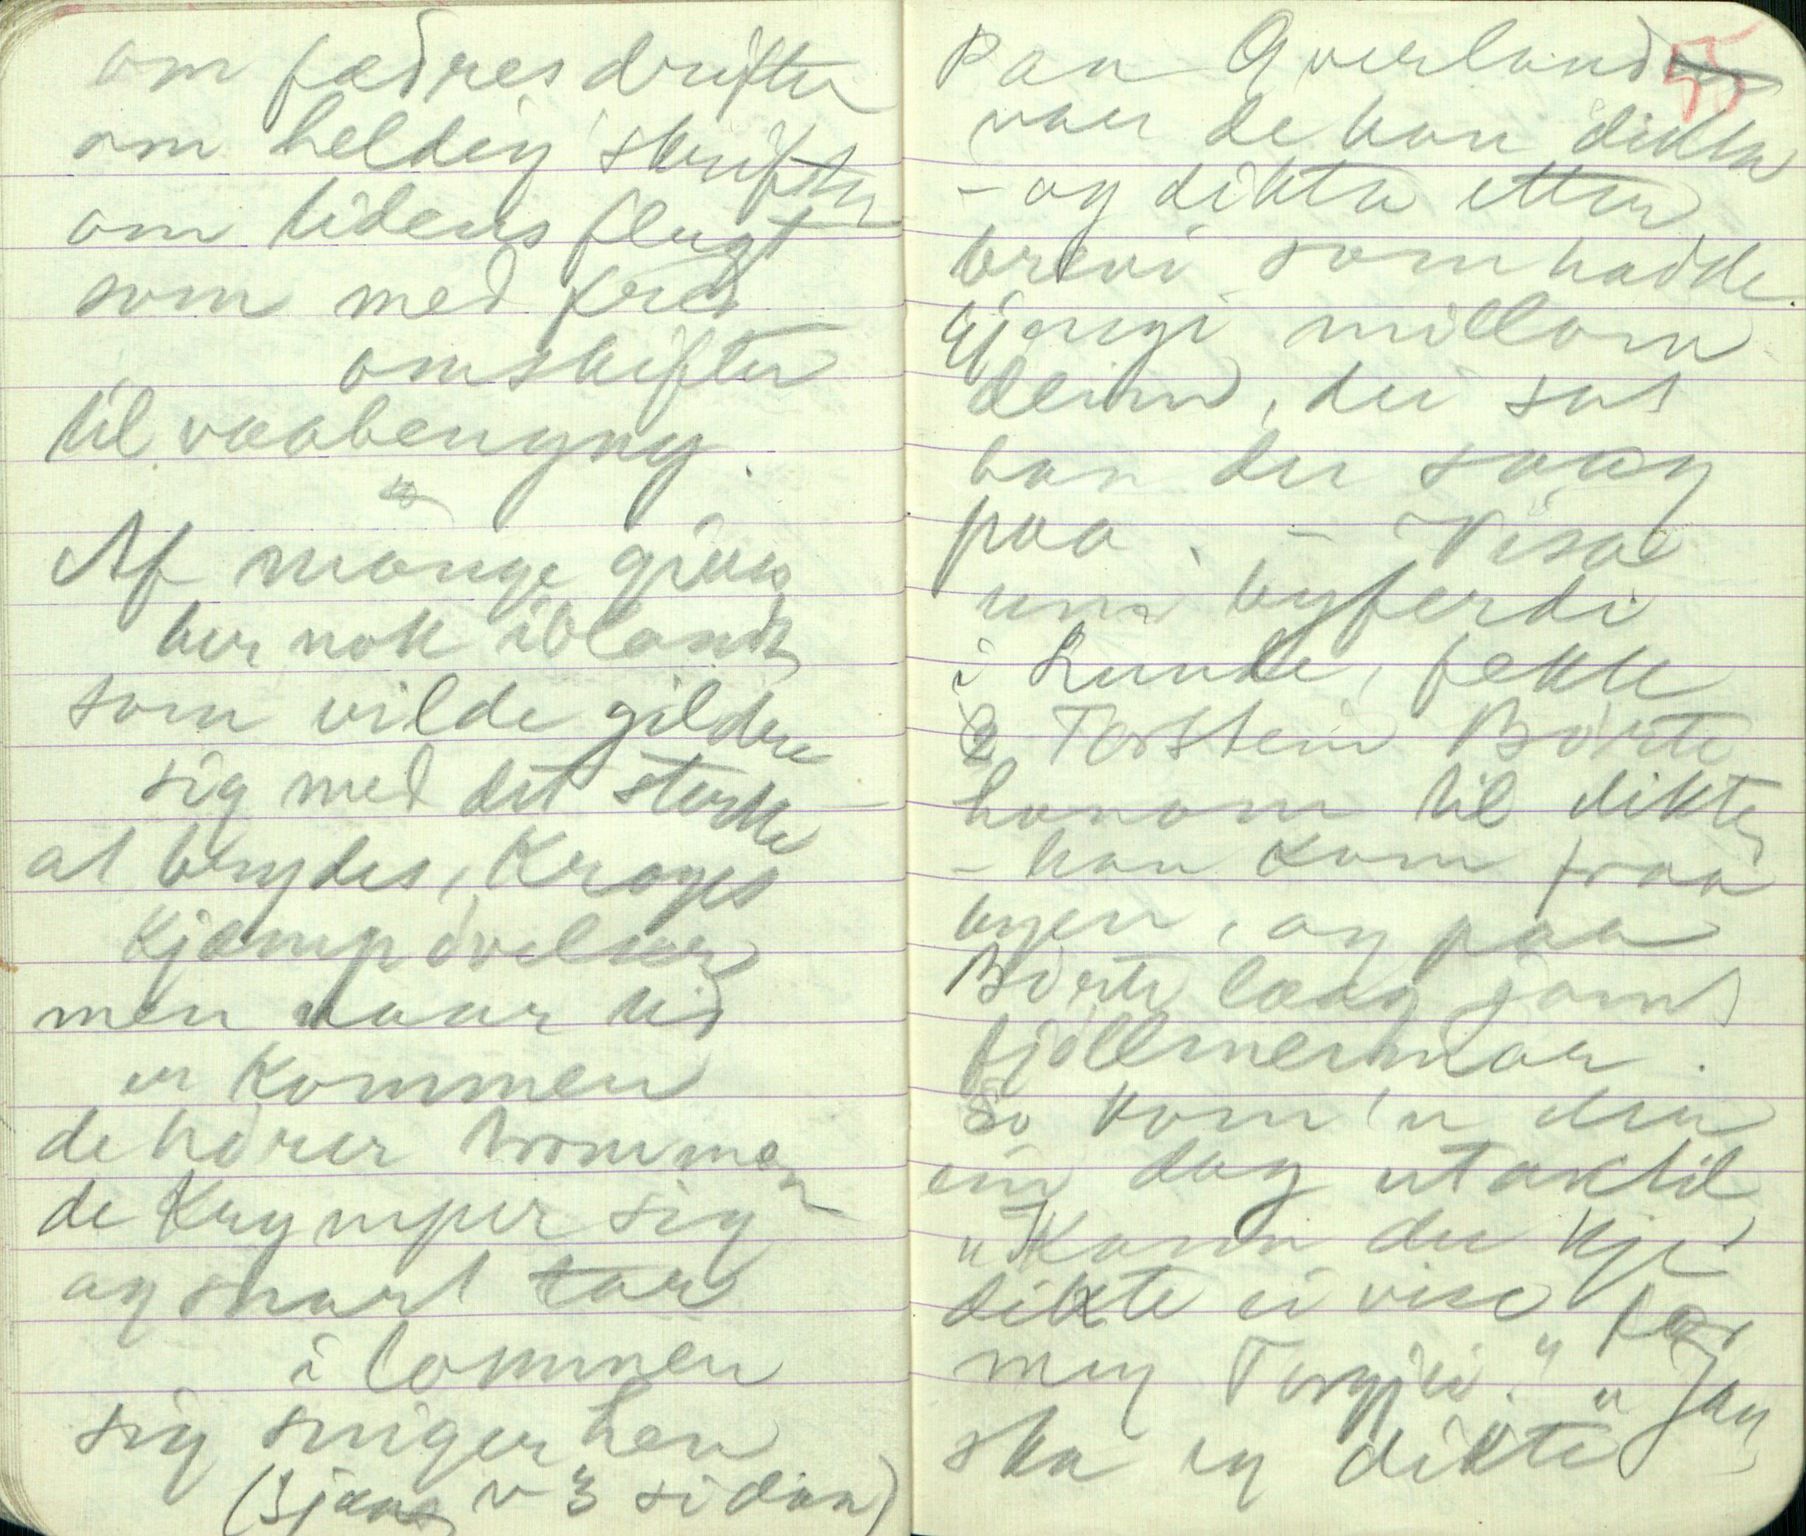 om fædres drifter
om heldig skrifter
om tidens flugt
som med fred
omskifter
til vaabengny.
Af mange giæve
her nok iblandt
som vilde gildre
sig med det sterke
at brydes, kroges
kjæmpøvelser
men naar tid
er kommen
de hører trommen
de krymper sig
og snart tar
i lommen
sig sniger hen
(Sjaa v 3 sidan)
55
Paa Qverland
var de han dikta
- og dikta etter
brevi som hadde
gjengi millom
deim, dei sat
han der saag
paa. - Visa
um byferdi
i Lunde, fekk
Torstein Børte
honom til dikte,
- han kom fraa
byen, og paa
Børte laag jamt
fjøllmennar.
So kom'n der
ein dag utaktil
"Kann du kje
dikte ei vise for
meg Torgjei." "Jau
ska eg dikte